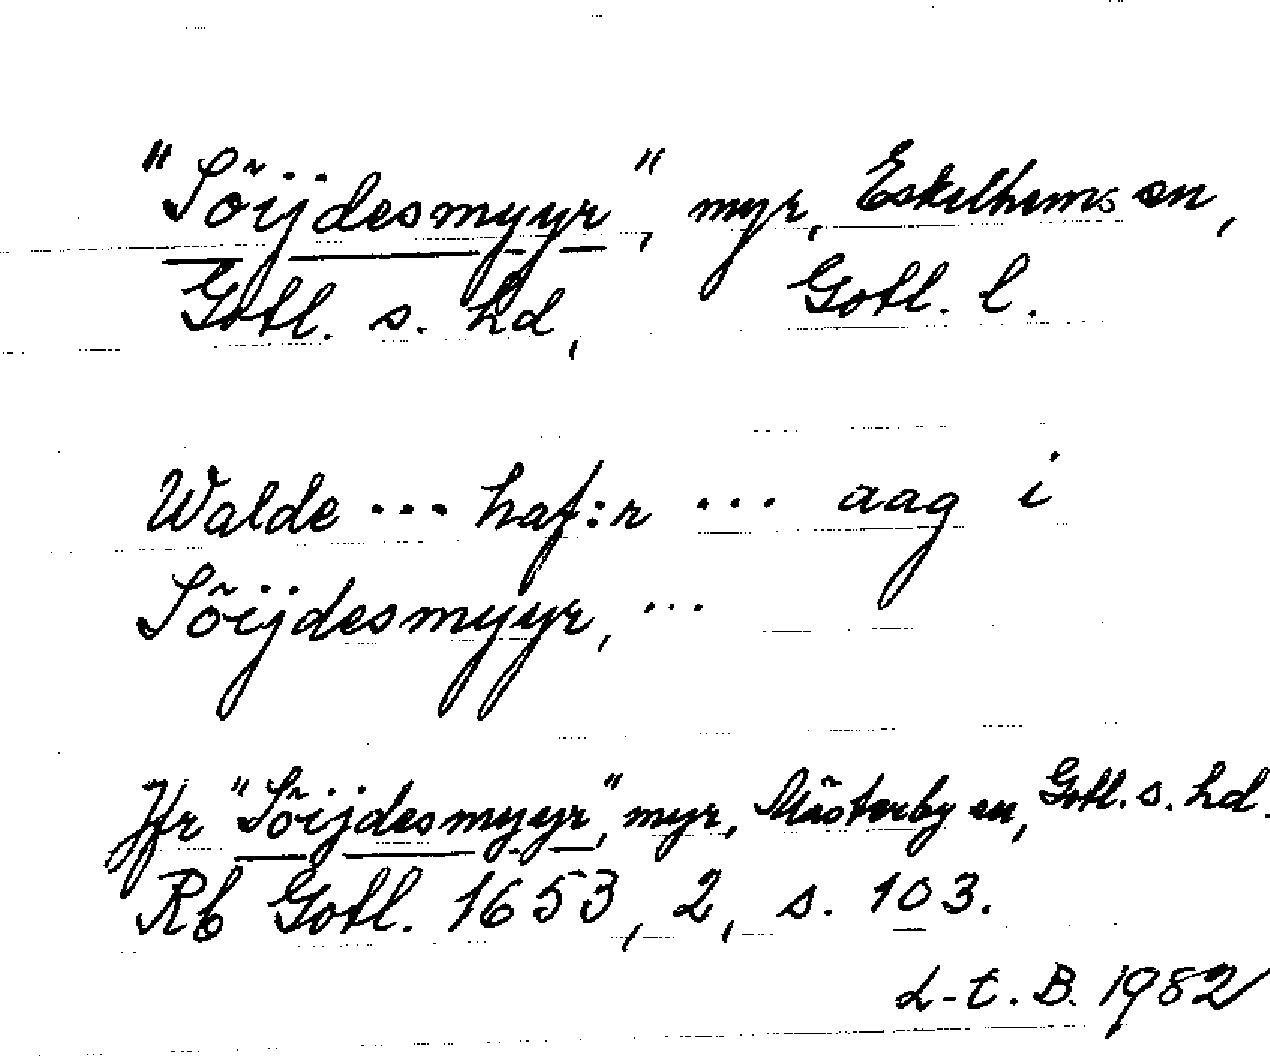 "Söijdesmyyr", myr, Eskelhems sn,
Gotl. s. hd, Gotl. l.
Walde ... haf:r ... aag i
Söijdesmyyr, ...
Jfr "Söijdesmyyr", myr, Mästerby sn, Gotl. s. hd.
Rb Gotl. 1653, 2, s. 103.
L-t. B. 1982